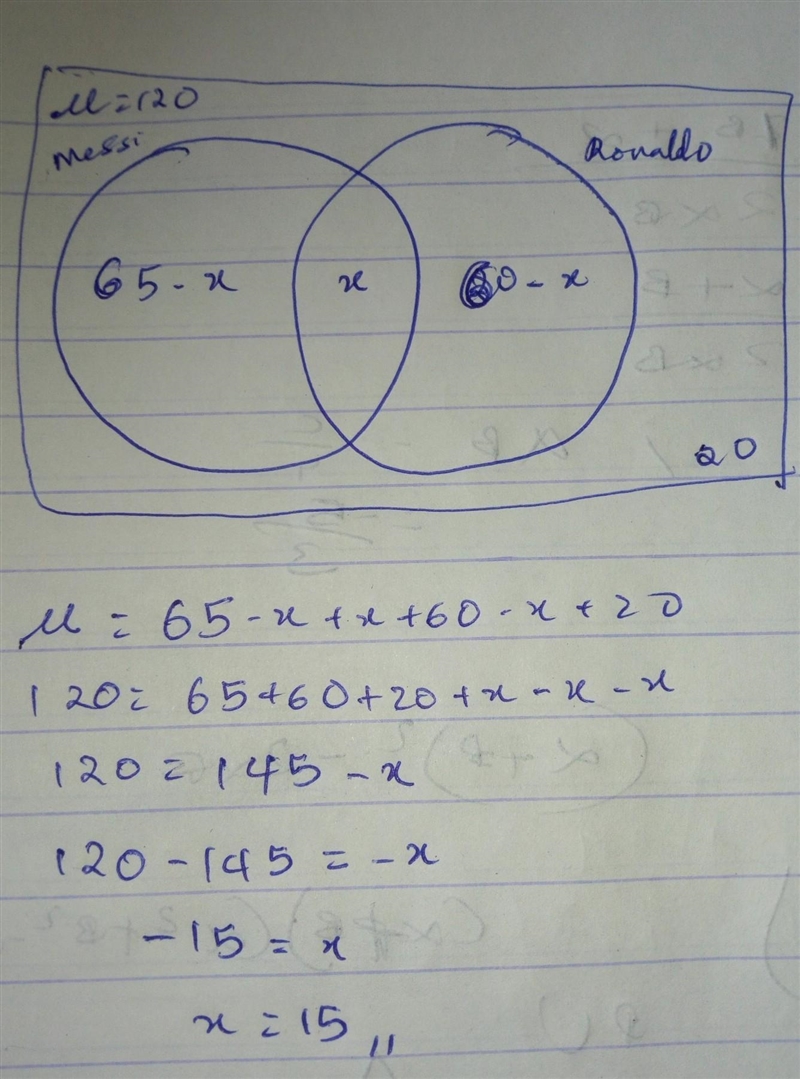 μ = 120
Messi
Ronaldo
65 - x
x
60 - x
20
μ = 65 - x + x + 60 - x + 20
120 = 65 + 60 + 20 + x - x - x
120 = 145 - x
120 - 145 = - x
- 15 = x
x = 15 ,,